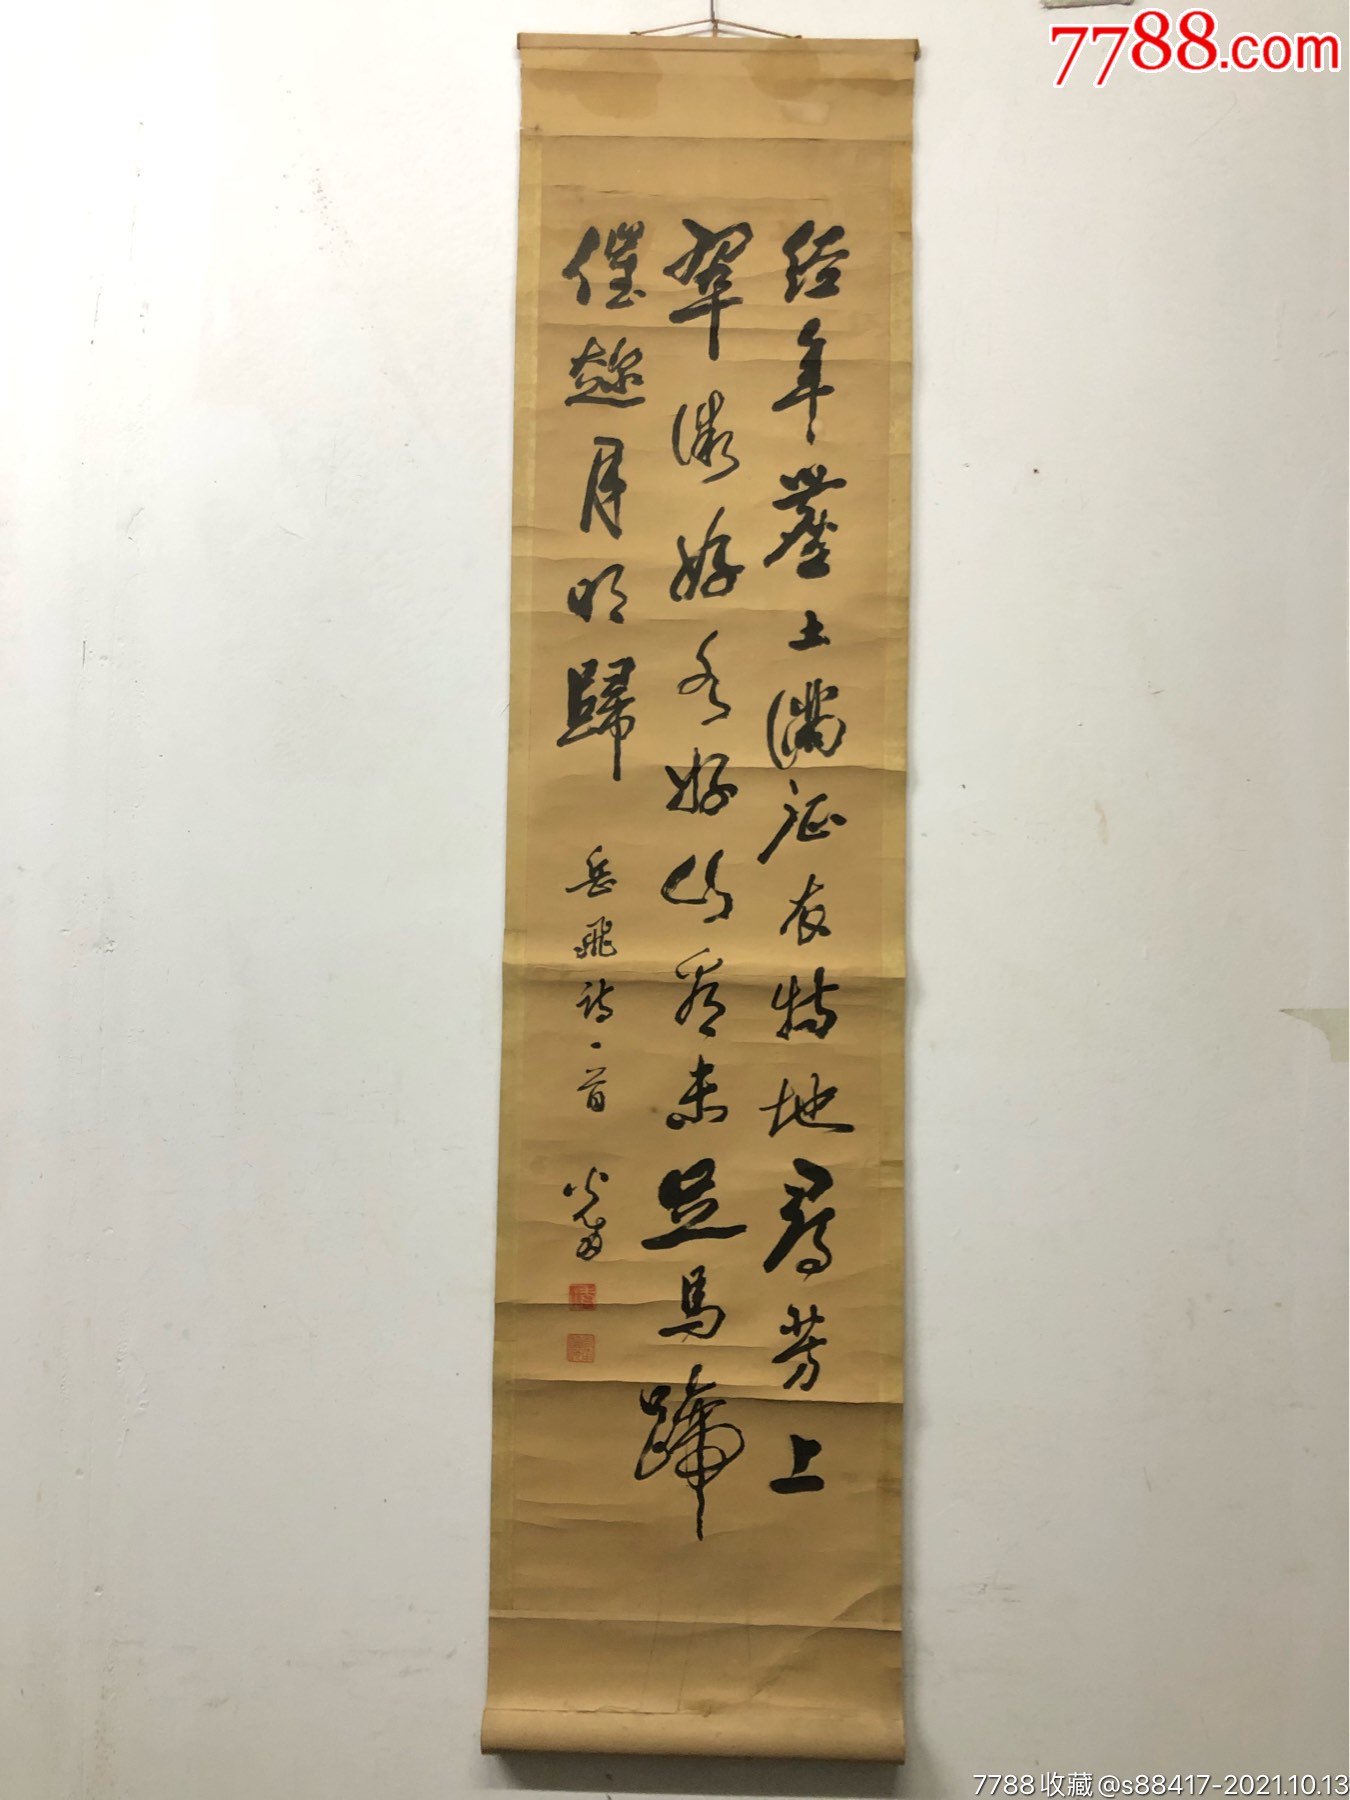 7788.com
經年塵土滿征衣特地尋芳上
翠微好水好山看未足馬蹄
催趁月明歸 岳飛詩一首
7788收藏@s88417-2021.10.13